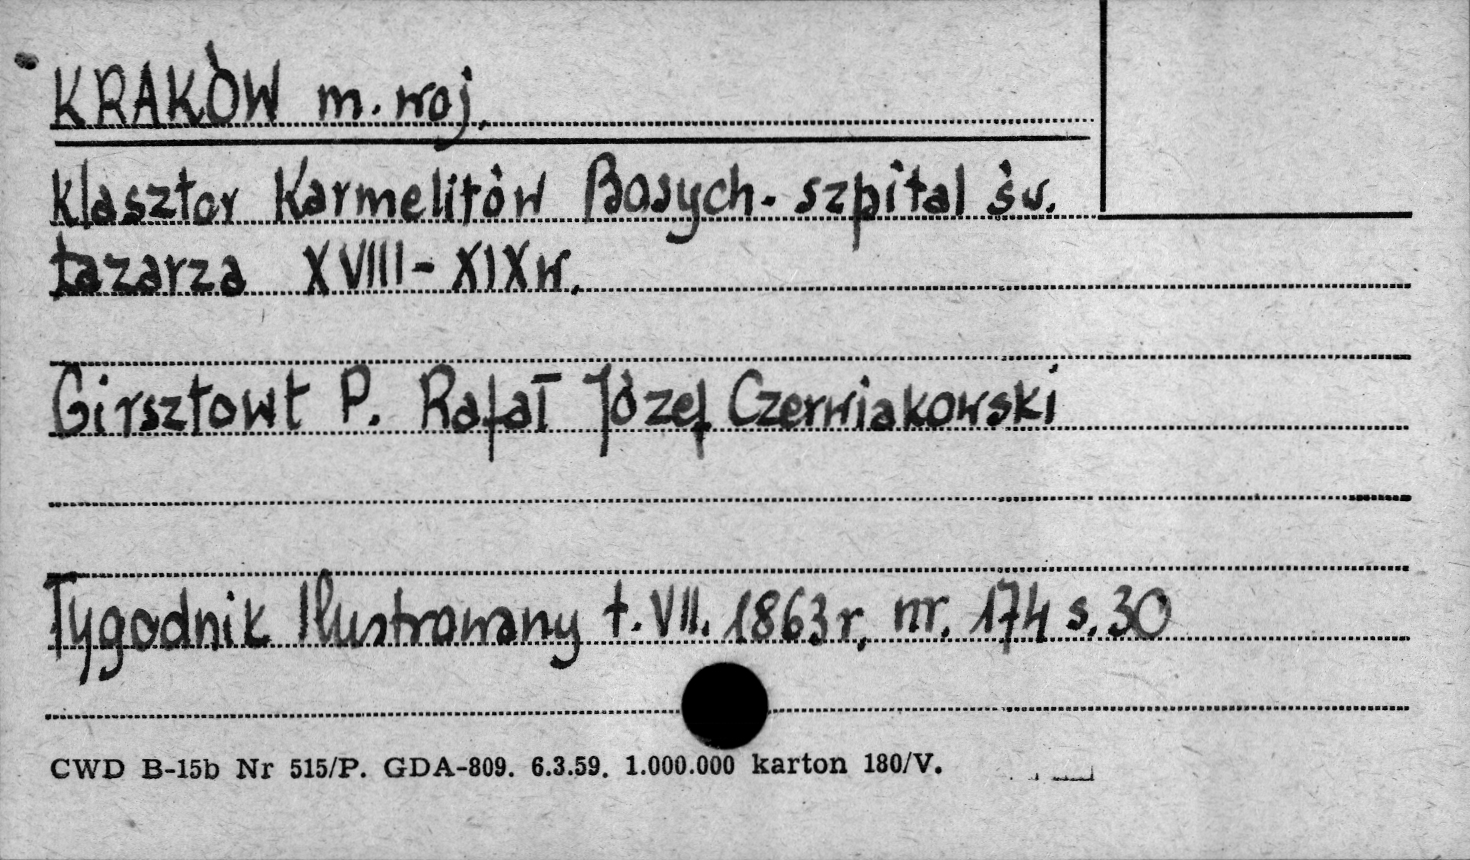 KRAKÓW m. woj.
klasztor Karmelitów Bosych - szpital św.
Łazarza XVIII - XIX w.
Girsztowt P. Rafał Józef Czerwiakowski
Tygodnik Ilustrowany t. VII. 1863 r. nr. 174 s. 30
CWD B-15b Nr 515/P. GDA-809. 6.3.59. 1.000.000 karton 180/V.